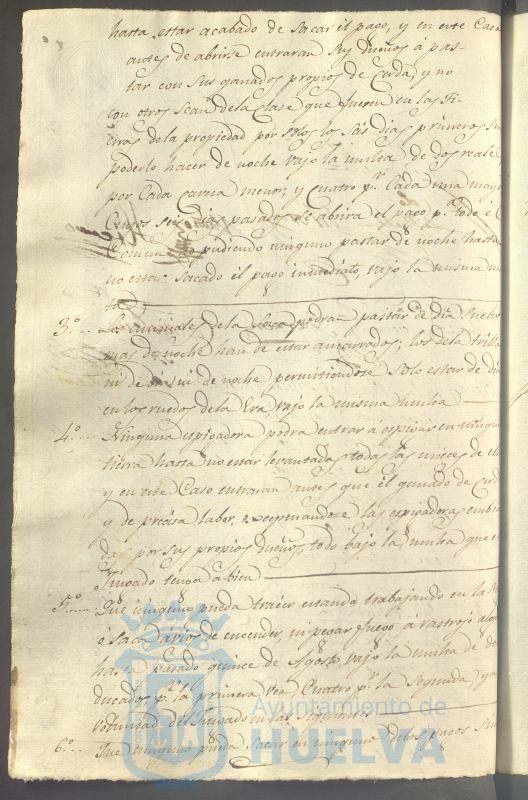 hasta estar acabado de sacar el pago, y en este Caso
antes de abrirse entraran sus dueños á pas-
tar con sus ganados propios de Cerda, y no
con otros sean de la clase que fueren en las ti-
erras de la propiedad por solos los seis dias primeros sin
poderlo hacer de noche vajo la multa de dos reale
por Cada Carena menor, y Cuatro pr. Cada una may
Cuyos seis dias pasados se abrira el pago pa. todo el C
Comun no pudiendo ninguno pastar de noche hasta
no estar sacado el pago inmediato, vajo la misma mu
ta
3.o Los animales de la podra pastar de dia sueltos
mas de noche han de estar amarrados; los de la trilla
ni de dia ni de noche permitiendose solo estar de dia
en los ruedos de la Era vajo la misma multa
4.o Ninguna espigadora podra entrar á espigar en ningun
tierra hasta no estar levantadas todas las mieces de ella
y en este Caso entraran antes que el ganado de Cerd
y de precisa labor, exceptuandose las espigadoras embia
das por sus propios dueños, todo bajo la multa que el
Juzgado tenga á bien
5.o Que ninguno pueda traer estando trabajando en la
ó saca abios de encender, ni pegar fuego á rastrojo algun
hasta pasado quince de Agosto, vajo la multa de do
ducados pr. la primera vez, Cuatro pr. la Segunda, y á
voluntad del Juzgado en las siguientes
6.o Que ninguno pueda sacar en ninguno de los pagos
Ayuntamiento de
HUELVA